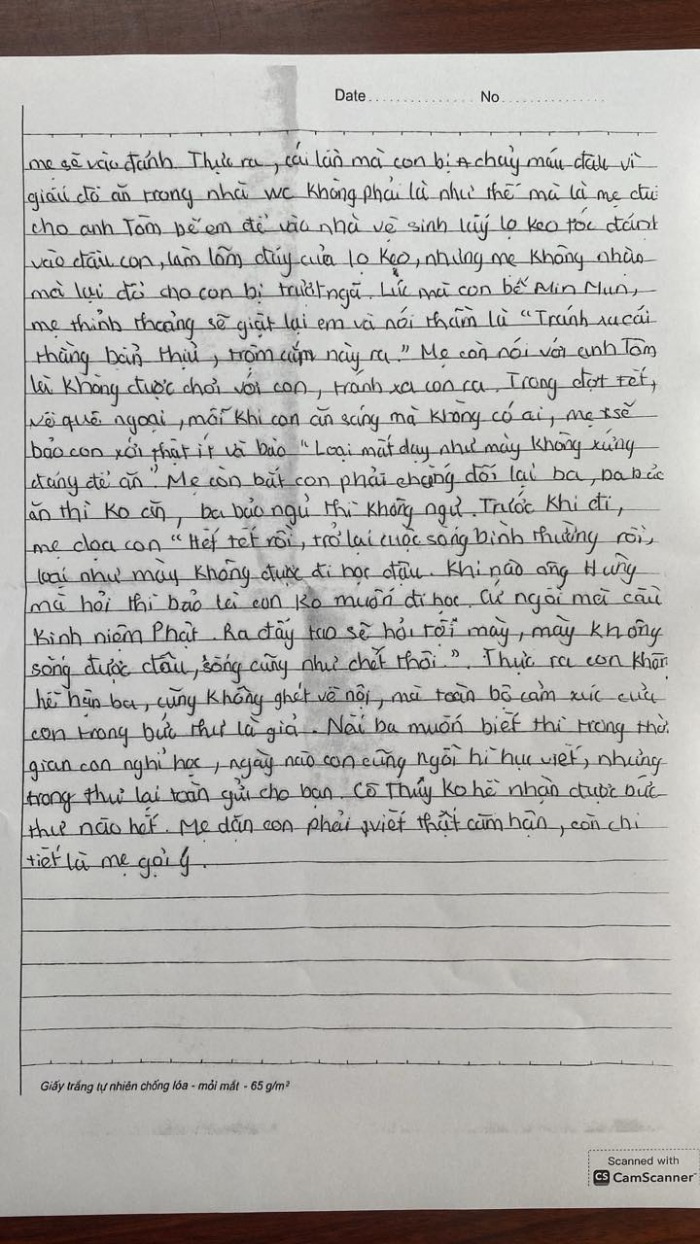 Date No
mẹ sẽ vào đánh. Thực ra, cái lần mà con bị chảy máu đầu vì
giấu đồ ăn trong nhà wc không phải là như thế mà là mẹ đưa
cho anh Tôm bế em để vào nhà vệ sinh lấy lọ keo tóc đánh
vào đầu con, làm lõm đáy của lọ kẹo, nhưng mẹ không nhận
mà lại đổ cho con bị trượt ngã. Lúc mà con bế Min Mun,
mẹ thỉnh thoảng sẽ giật lại em và nói thầm là "Tránh xa cái
thằng bẩn thỉu, trộm cắp này ra." Mẹ còn nói với anh Tôm
là không được chơi với con, tránh xa con ra. Trong đợt tết,
về quê ngoại, mỗi khi con ăn sáng mà không có ai, mẹ sẽ
bảo con xới thật ít và bảo "Loại mất dạy như mày không xứng
đáng để ăn". Mẹ còn bắt con phải chống đối lại ba, ba bảo
ăn thì ko ăn, ba bảo ngủ thì không ngủ. Trước khi đi,
mẹ dọa con "Hết tết rồi, trở lại cuộc sống bình thường rồi,
loại như mày không được đi học đâu. Khi nào ông Hưng
mà hỏi thì bảo là con ko muốn đi học. Cứ ngồi mà cầu
kinh niệm Phật. Ra đấy tao sẽ hỏi tội mày, mày không
sống được đâu, sống cũng như chết thôi". Thực ra con không
hề hận ba, cũng không ghét về nội, mà toàn bộ cảm xúc của
con trong bức thư là giả. Nói ba muốn biết thì trong thời
gian con nghỉ học, ngày nào con cũng ngồi hì hục viết, nhưng
trong thư lại toàn gửi cho bạn. Cô Thủy ko hề nhận được bức
thư nào hết. Mẹ dặn con phải viết thật căm hận, còn chi
tiết là mẹ gợi ý.
Giấy trắng tự nhiên chống lóa - mỏi mắt - 65 g/m²
Scanned with
CS CamScanner